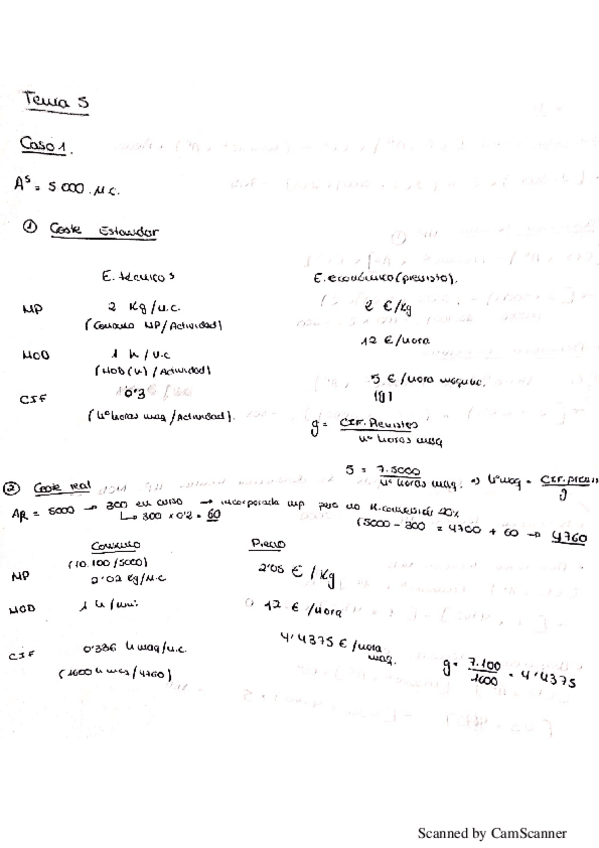 Tema 5
Caso 1.
A^s = 5000 u.c.
① Coste Estandar
E. técnico s E. económico (previsto).
MP 2 Kg/u.c. 2 €/Kg
(Consumo MP/Actividad)
MOD 1 h/u.c 12 €/hora
(MOD (h) / Actividad)
CIF 0'3 5 €/hora maquina.
(nº horas maq/Actividad). (g)
g = CIF. Previstos / nº horas maq
5 = 7.5000 / nº horas maq. => nº maq =
g
② Coste real
AR = 5000 → 300 en curso → incorporada mp pero no 20%
↳ 300 x 0'2 = 60 (5000 - 300 = 4700 + 60 → 4760
Consumo Precio
MP (10.100/5000) 2'05 €/Kg
2'02 Kg/u.c
MOD 1 h/uni 12 €/hora
CIF 0'336 h maq/u.c. 4'4375 €/hora maq.
(1600 /4760) g = 7.100 / 1600 = 4'4375
Scanned by CamScanner